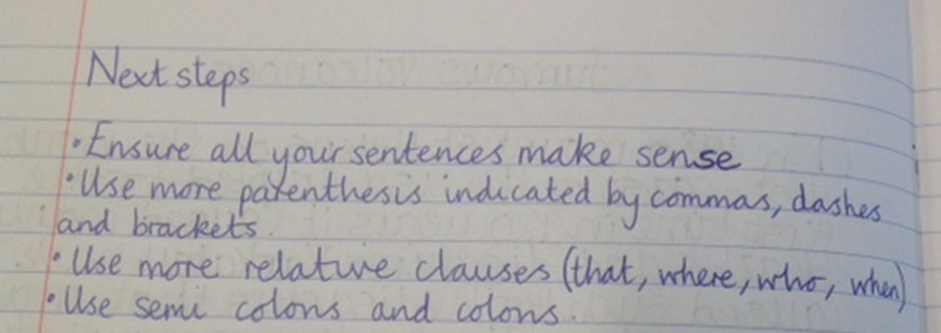 Next steps
• Ensure all your sentences make sense
• Use more parenthesis indicated by commas, dashes
and brackets.
• Use more relative clauses (that, where, who, when)
• Use semi colons and colons.